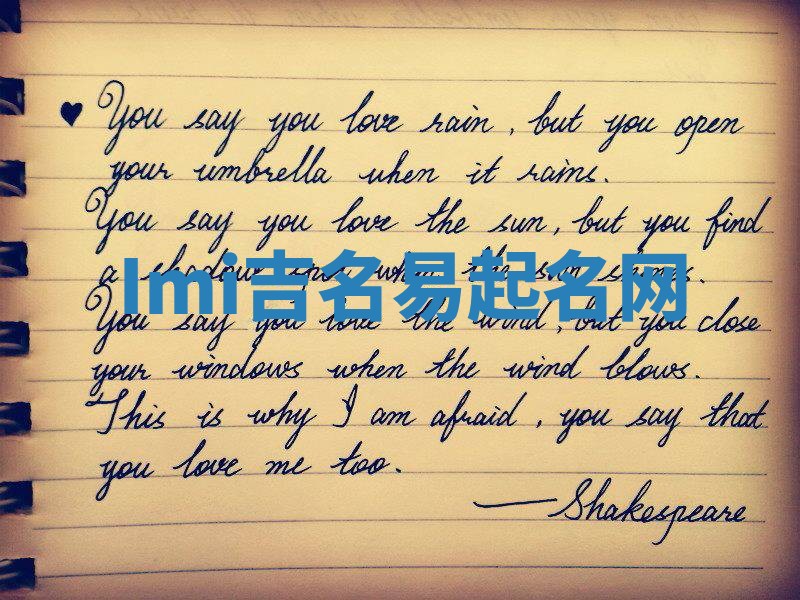 ♥ You say you love rain, but you open
your umbrella when it rains.
You say you love the sun, but you find
a shadow spot when the sun shines.
lmi吉名易起名网
You say you love the wind, but you close
your windows when the wind blows.
This is why I am afraid, you say that
you love me too.
—Shakespeare